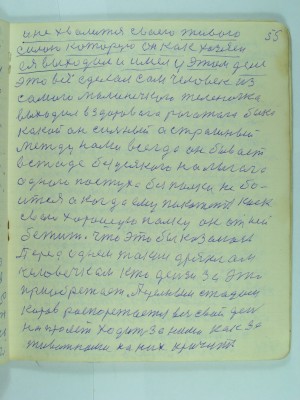 и не хвалится своего живого 55
силою которую он как хозяен
ся выходил и имел у этом деле
это всё сделал сам человек из
самого маленичкую теленочка
выходил вздорового рогатого быка
какой он сильный а страшный
между нами всегда он бывает
в стаде без всякого
одного пастуха без палки не бо-
ится а когда ему покажеть как
свою хорошую палку он от ней
бежить. Что это бы казалось
Перед одним таким дряхлым
человечком кто деньги за это
приобретает. А целыми стадами
коров распоряжается весь свой день
напролёт ходить за ними как за
животными на них кричить